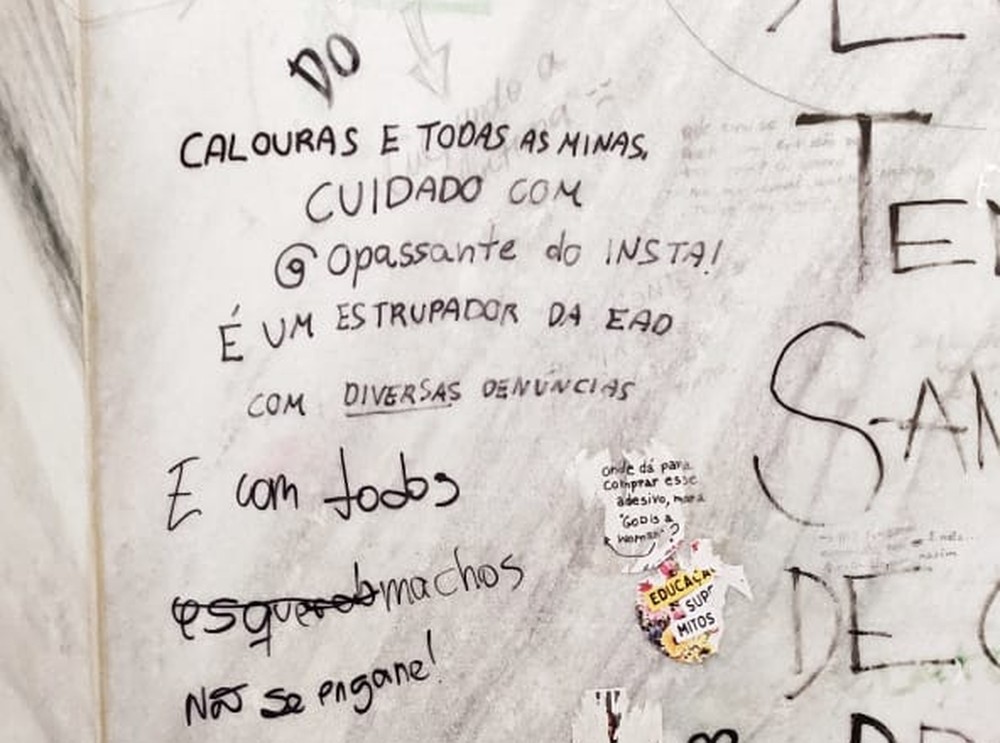 DO
CALOURAS E TODAS AS MINAS,
CUIDADO COM
@opassante do INSTA!
É UM ESTRUPADOR DA EAD
COM DIVERSAS DENÚNCIAS
E com todos
machos
Não se engane!
onde dá para
comprar esse
adesivo, mana
"GOD is a
woman"?
EDUCAÇA
SUP
MITOS
T
TE
SAN
DE